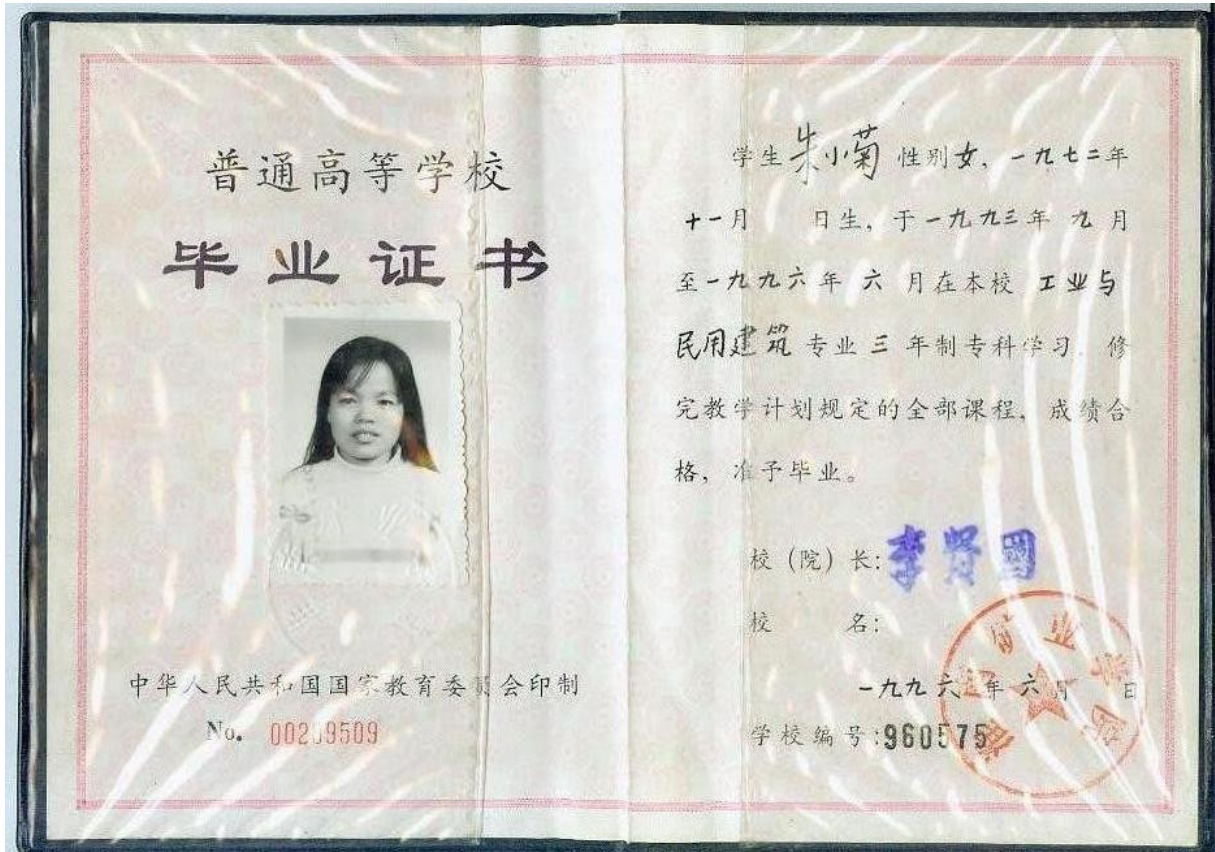 普通高等学校
毕业证书
中华人民共和国国家教育委员会印制
No.
学生朱小菊性别女，一九七二年
十一月 日生，于一九九三年九月
至一九九六年六月在本校工业与
民用建筑专业三年制专科学习 修
完教学计划规定的全部课程，成绩合
格，准予毕业。
校（院）长：李贤国
校 名：
矿业学院
一九九六年六月 日
学校编号：960575